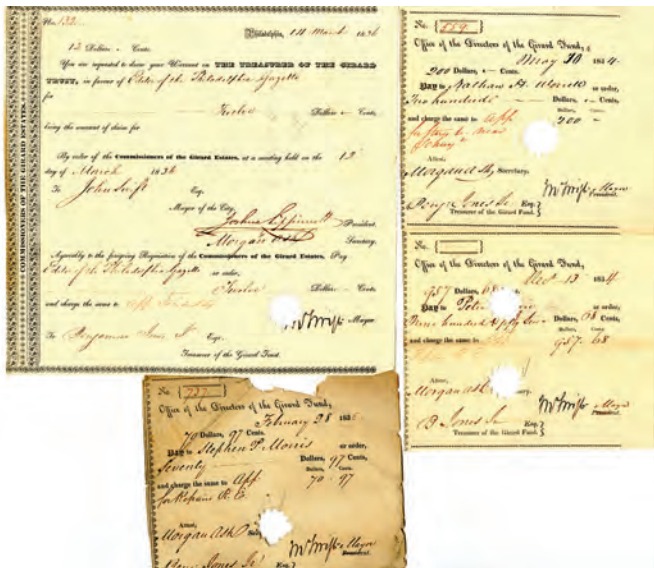 COMMISSIONERS OF THE GIRARD ESTATES.
No. 132
Philadelphia, 14 March 1836
12 Dollars - Cents.
You are requested to draw your Warrant on THE TREASURER OF THE GIRARD
TRUST, in favour of Editor of the Philadelphia Gazette
for
Twelve Dollars - Cents,
being the amount of claim for
By order of the Commissioners of the Girard Estates, at a meeting held on the 12
day of March 1836
To John Swift Esq.
Mayor of the City.
Joshua Lippincott President.
Morgan Ash Secretary.
Agreeably to the foregoing Requisition of the Commissioners of the Girard Estates, Pay
Editor of the Philadelphia Gazette or order,
Twelve Dollars - Cents,
and charge the same to App
Mayor.
To Benjamin Jones Jr Esqr.
Treasurer of the Girard Trust.
No. 559
Office of the Directors of the Girard Fund,
May 10 1834.
200 Dollars, - Cents.
PAY to Nathan or order,
Two hundred Dollars, - Cents,
Dollars, Cents.
and charge the same to App 200 -
for
Attest,
Morgan Ash Secretary.
Mayor
President.
Jones Jr Esq.
Treasurer of the Girard Fund.
No.
Office of the Directors of the Girard Fund,
13 1834
957 Dollars, 68 Cents.
PAY to Peter or order,
Nine hundred & fifty Seven Dollars, 68 Cents,
Dollars, Cents.
and charge the same to 957 68
Attest,
Morgan Ash
Mayor
President.
B Jones Jr Esq.
Treasurer of the Girard Fund.
No. 727
Office of the Directors of the Girard Fund,
February 28 183
70 Dollars, 97 Cents.
PAY to Stephen P. Morris or order,
Seventy Dollars, 97 Cents,
Dollars, Cents.
and charge the same to App 70 - 97
for Repairs R. E.
Attest,
Morgan Ash
Mayor
President.
Jones Jr Esq.